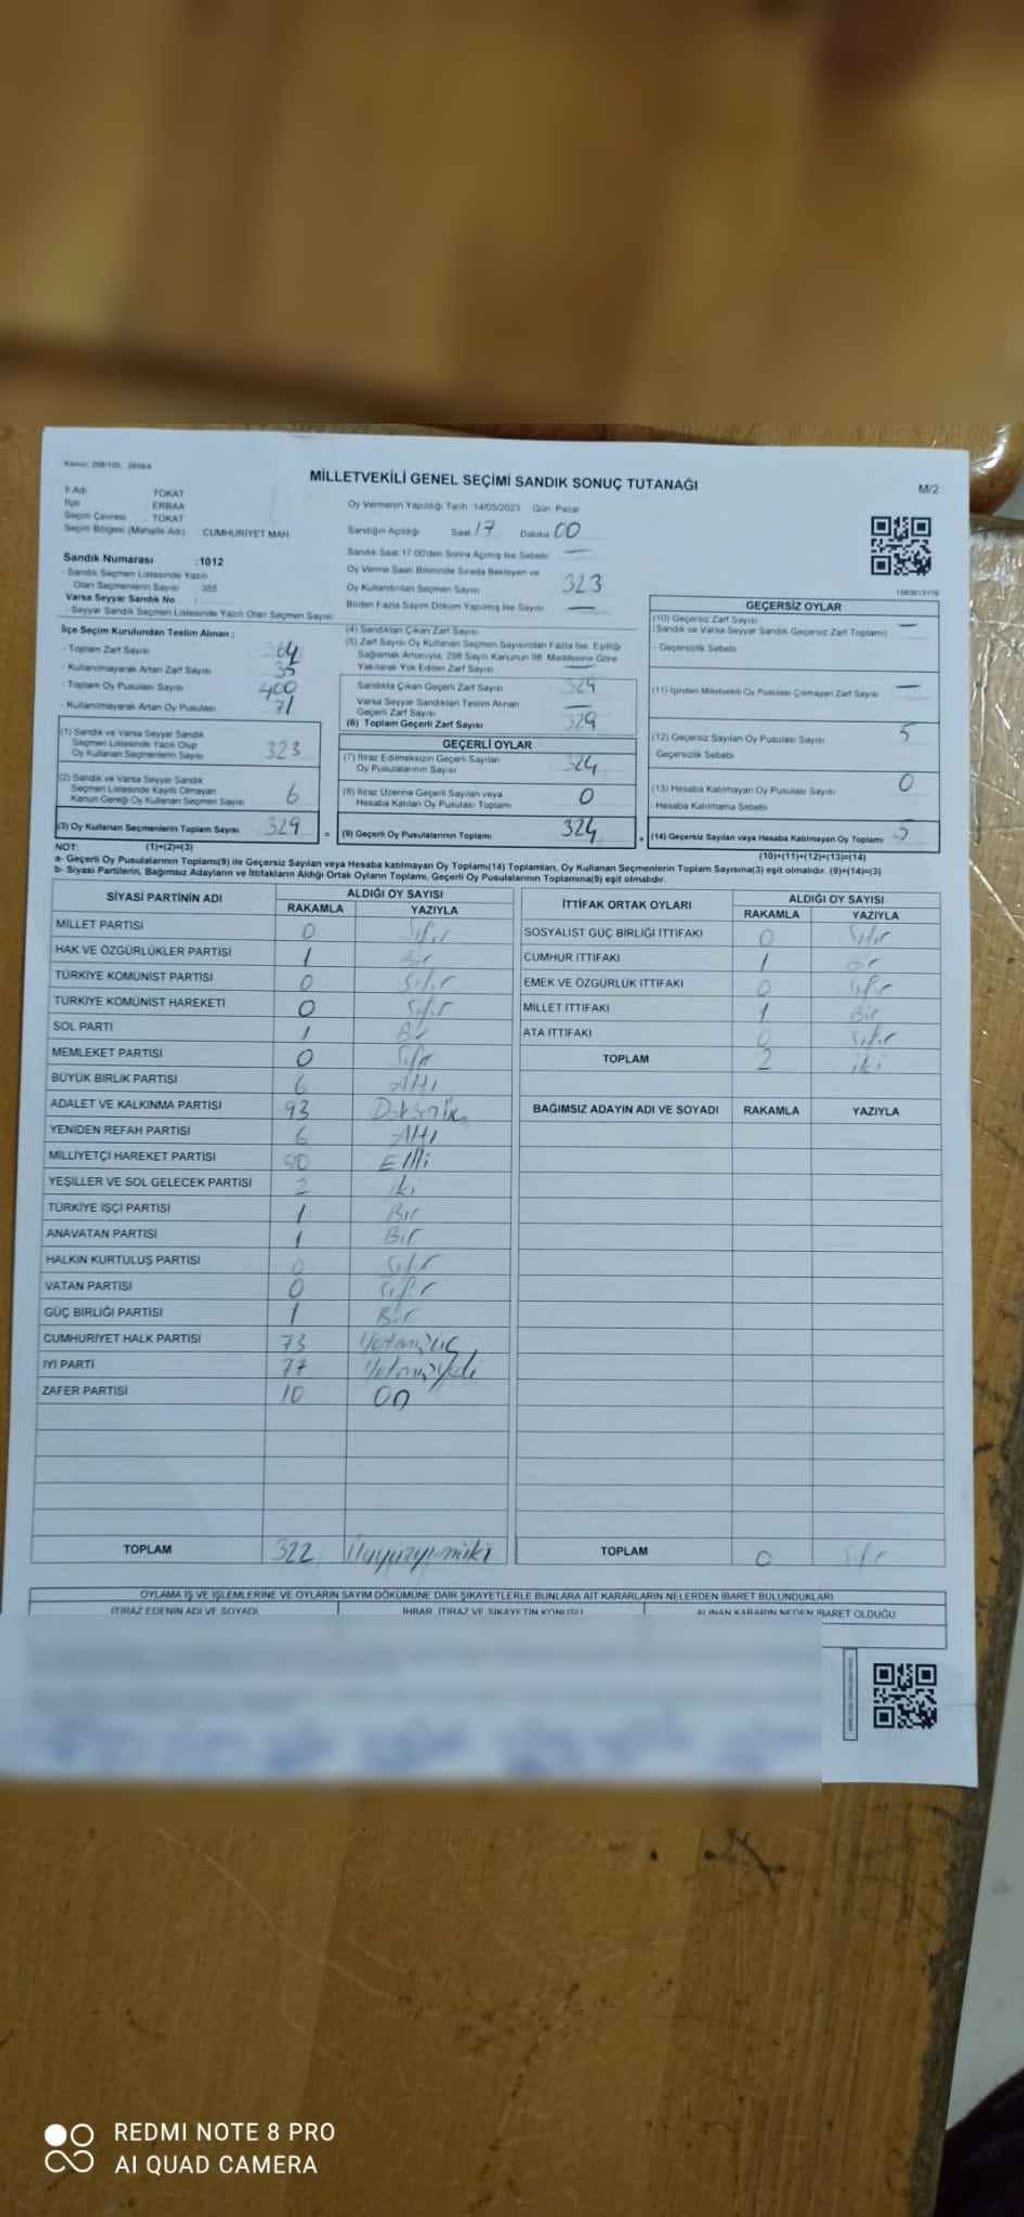 MİLLETVEKİLİ GENEL SEÇİMİ SANDIK SONUÇ TUTANAĞI
M/2
İl Adı TOKAT
İlçe ERBAA
Seçim Çevresi TOKAT
Seçim Bölgesi (Mahalle Adı) CUMHURİYET MAH.
Oy Vermenin Yapıldığı Tarih: 14/05/2023 Gün: Pazar
Sandığın Açıldığı Saat 17 Dakika 00
Sandık Saat 17.00'den Sonra Açılmış İse Sebebi —
Sandık Numarası :1012
- Sandık Seçmen Listesinde Yazılı
Olan Seçmenlerin Sayısı 355
Varsa Seyyar Sandık No
- Seyyar Sandık Seçmen Listesinde Yazılı Olan Seçmen Sayısı
Oy Verme Saati Bitiminde Sırada Bekleyen ve
Oy Kullandırılan Seçmen Sayısı 323
Birden Fazla Sayım Döküm Yapılmış İse Sayısı —
İlçe Seçim Kurulundan Teslim Alınan ;
- Toplam Zarf Sayısı
- Kullanılmayarak Artan Zarf Sayısı 35
- Toplam Oy Pusulası Sayısı 400
- Kullanılmayarak Artan Oy Pusulası 71
(1) Sandık ve Varsa Seyyar Sandık
Seçmen Listesinde Yazılı Olup
Oy Kullanan Seçmenlerin Sayısı 323
(2) Sandık ve Varsa Seyyar Sandık
Seçmen Listesinde Kayıtlı Olmayan
Kanun Gereği Oy Kullanan Seçmen Sayısı 6
(3) Oy Kullanan Seçmenlerin Toplam Sayısı 329
(4) Sandıktan Çıkan Zarf Sayısı
(5) Zarf Sayısı Oy Kullanan Seçmen Sayısından Fazla İse, Eşitliği
Sağlamak Amacıyla, 298 Sayılı Kanunun 98. Maddesine Göre
Yakılarak Yok Edilen Zarf Sayısı —
Sandıkta Çıkan Geçerli Zarf Sayısı 329
Varsa Seyyar Sandıktan Teslim Alınan
Geçerli Zarf Sayısı —
(6) Toplam Geçerli Zarf Sayısı 329
GEÇERLİ OYLAR
(7) İtiraz Edilmeksizin Geçerli Sayılan
Oy Pusulalarının Sayısı 324
(8) İtiraz Üzerine Geçerli Sayılan veya
Hesaba Katılan Oy Pusulası Toplamı 0
(9) Geçerli Oy Pusulalarının Toplamı 324
GEÇERSİZ OYLAR
(10) Geçersiz Zarf Sayısı —
(Sandık ve Varsa Seyyar Sandık Geçersiz Zarf Toplamı)
- Geçersizlik Sebebi
(11) İçinden Milletvekili Oy Pusulası Çıkmayan Zarf Sayısı —
(12) Geçersiz Sayılan Oy Pusulası Sayısı 5
Geçersizlik Sebebi
(13) Hesaba Katılmayan Oy Pusulası Sayısı 0
- Hesaba Katılmama Sebebi
(14) Geçersiz Sayılan veya Hesaba Katılmayan Oy Toplamı 5
NOT: (1)+(2)=(3)
(10)+(11)+(12)+(13)=(14)
a- Geçerli Oy Pusulalarının Toplamı(9) ile Geçersiz Sayılan veya Hesaba katılmayan Oy Toplamı(14) Toplamları, Oy Kullanan Seçmenlerin Toplam Sayısına(3) eşit olmalıdır. (9)+(14)=(3)
b- Siyasi Partilerin, Bağımsız Adayların ve İttifakların Aldığı Ortak Oyların Toplamı, Geçerli Oy Pusulalarının Toplamına(9) eşit olmalıdır.
SİYASİ PARTİNİN ADI ALDIĞI OY SAYISI
RAKAMLA YAZIYLA
MİLLET PARTİSİ 0 Sıfır
HAK VE ÖZGÜRLÜKLER PARTİSİ 1 Bir
TÜRKİYE KOMÜNİST PARTİSİ 0 Sıfır
TÜRKİYE KOMÜNİST HAREKETİ 0 Sıfır
SOL PARTİ 1 Bir
MEMLEKET PARTİSİ 0 Sıfır
BÜYÜK BİRLİK PARTİSİ 6 Altı
ADALET VE KALKINMA PARTİSİ 93
YENİDEN REFAH PARTİSİ 6 Altı
MİLLİYETÇİ HAREKET PARTİSİ 50 Elli
YEŞİLLER VE SOL GELECEK PARTİSİ 2 iki
TÜRKİYE İŞÇİ PARTİSİ 1 Bir
ANAVATAN PARTİSİ 1 Bir
HALKIN KURTULUŞ PARTİSİ 0 Sıfır
VATAN PARTİSİ 0 Sıfır
GÜÇ BİRLİĞİ PARTİSİ 1 Bir
CUMHURİYET HALK PARTİSİ 73 Yetmişüç
İYİ PARTİ 77 Yetmişyedi
ZAFER PARTİSİ 10 On
TOPLAM 322 Üçyüzyirmiiki
İTTİFAK ORTAK OYLARI ALDIĞI OY SAYISI
RAKAMLA YAZIYLA
SOSYALİST GÜÇ BİRLİĞİ İTTİFAKI 0 Sıfır
CUMHUR İTTİFAKI 1 Bir
EMEK VE ÖZGÜRLÜK İTTİFAKI 0 Sıfır
MİLLET İTTİFAKI 1 Bir
ATA İTTİFAKI 0 Sıfır
TOPLAM 2 iki
BAĞIMSIZ ADAYIN ADI VE SOYADI RAKAMLA YAZIYLA
TOPLAM 0 Sıfır
OYLAMA İŞ VE İŞLEMLERİNE VE OYLARIN SAYIM DÖKÜMÜNE DAİR ŞİKAYETLERLE BUNLARA AİT KARARLARIN NELERDEN İBARET BULUNDUKLARI
İTİRAZ EDENİN ADI VE SOYADI İHBAR, İTİRAZ VE ŞİKAYETİN KONUSU ALINAN KARARIN NEDEN İBARET OLDUĞU
REDMI NOTE 8 PRO
AI QUAD CAMERA